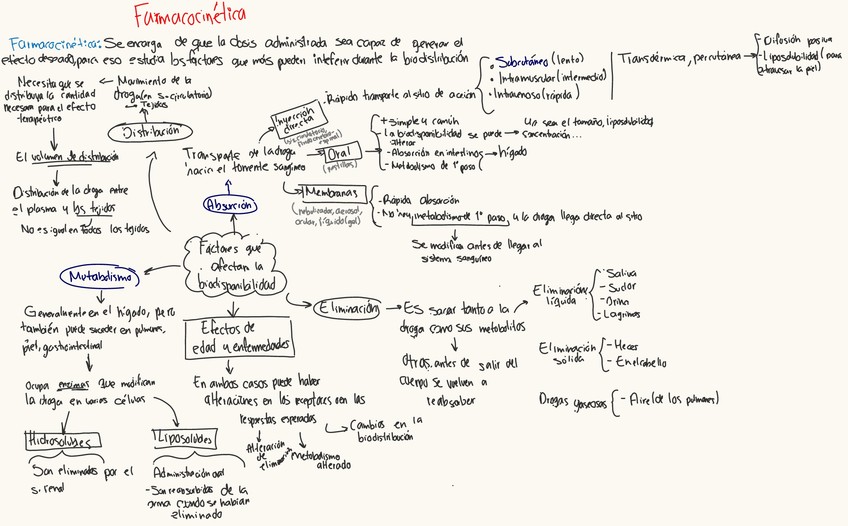 Farmacocinética
Farmacocinética: Se encarga de que la dosis administrada sea capaz de generar el
efecto deseado, para eso estudia los factores que más pueden inteferir durante la biodistribución
Necesita que se
distribuya la cantidad
necesaria para el efecto
terapéutico
Movimiento de la
droga (en s-circulatorio)
Tejidos
Distribución
El volumen de distribución
Distribución de la droga entre
el plasma y los tejidos
No es igual en todos los tejidos
Factores que
afectan la
biodisponibilidad
Absorción
Transporte de la droga
hacia el torrente sanguíneo
Inyección
directa
- Rápido transporte al sitio de acción
• Subcutáneo (lento)
• Intramuscular (intermedio)
• Intravenosa (rápida)
Transdérmica, percutánea
- Difusión pasiva
- Liposolubilidad (para
atravesar la piel)
Oral
(pastillas)
+ simple y común
La biodisponibilidad se puede
alterar
- Absorción en intestinos → hígado
- Metabolismo de 1° paso
sea el tamaño, liposolubilidad,
concentración...
Membranas
(nebulizador, aerosol,
ocular, líquido/gel)
- Rápida absorción
- No hay metabolismo de 1° paso y la droga llega directa al sitio
Se modifica antes de llegar al
sistema sanguíneo
Mutabolismo
Generalmente en el hígado, pero
también puede suceder en pulmones,
piel, gastrointestinal
Ocupa enzimas que modifican
la droga en varios células
Hidrosolubles
Son eliminados por el
s. renal
Liposolubles
Administración oral
- Son reabsorbidos de la
orina cuando se habían
eliminado
Efectos de
edad y enfermedades
En ambos casos puede haber
alteraciones en los receptores en las
respuestas esperadas
Alteración
de
eliminación
metabolismo
alterado
Cambios en la
biodistribución
Eliminación
Es sacar tanto a la
droga como sus metabolitos
Otras, antes de salir del
cuerpo se vuelven a
reabsorber
Eliminación
líquida
- Saliva
- Sudor
- Orina
- Lagrimas
Eliminación
sólida
- Heces
- En el cabello
Drogas gaseosas
- Aire (de los pulmones)